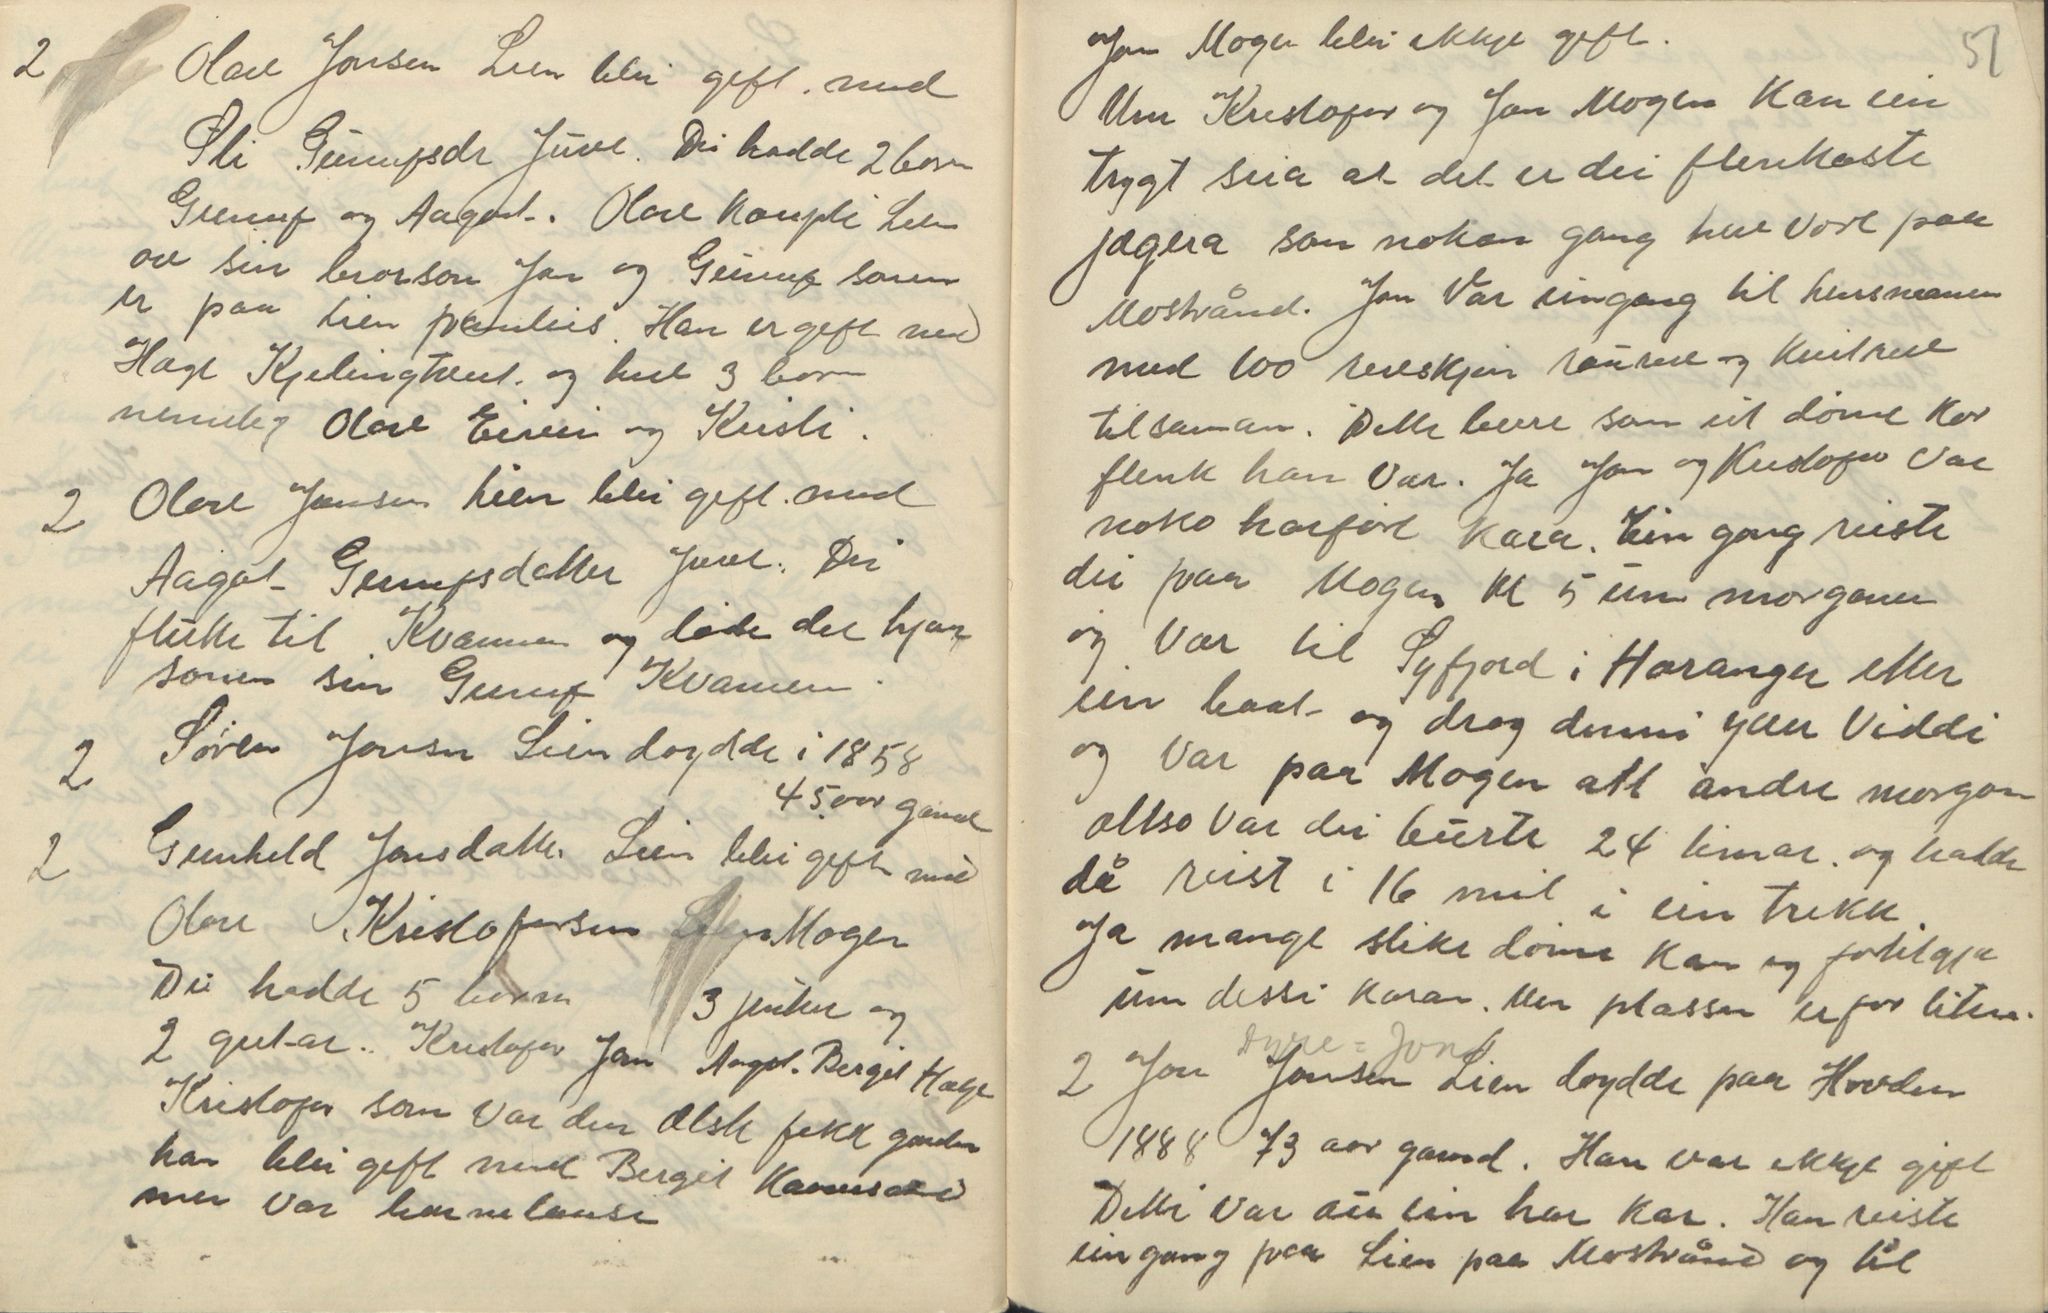 2 Olav Jonsen Lien blei gift. med
Sli Gunufsdr Juve. Dei hadde 2 born
Gunuf og Aagot. Olav kaupte Lien
av sin brorson Jon og Gunuf sonen
er paa Lien framleis. Han er gift med
Hæge Kjelingtveit. og heve 3 born
nemleg Olav Eivin og Kristi.
2 Olav Jonsen Lien blei gift med
Aagot Gunufsdatter Juve. Dei
flutte til Kvamen og døde der hjaa
sonen sin Gunuf Kvamen.
2 Søren Jonsen Lien doydde i 1858
45 aar gamal
2 Gunheld Jonsdatter Lien blei gift med
Olav Kristofersen Mogen
Dei hadde 5 born 3 jenter og
2 gutar. Kristofer Jon Aagot. Bergit Hæge
Kristofer som var den ælste fekk garden
han blei gift med Bergit
men var barnelause
51
Jon Mogen blei ikkje gift.
Um Kristofer og Jon Mogen kan ein
trygt seia at det er dei flenkaste
jægera som nokon gang heve vore paa
Mostrånd. Jon var eingang til lensmannen
med 100 reveskjin raureve og kvitreve
tilsaman. Dette bere som eit døme kor
flenk han var. Ja Jon og Kristofer var
noko harføre kara. Ein gong reiste
dei paa Mogen kl 5 um morgonen
og var til Syfjord i Haranger etter
ein baat og drog denni yver Viddi
og var paa Mogen att andre morgon
altso var dei burte 24 timar. og hadde
då reist i 16 mil i ein trekk.
Ja mange slike døme kan eg fortelgja
um dessi karan. Men plassen er for liten.
Dyre = Jon
2 Jon Jonsen Lien doydde paa Hovden
1888 73 aar gamal. Han var ikkje gift
Dette var au ein har kar. Han reiste
ein gang paa Lien paa Mostrånd og til